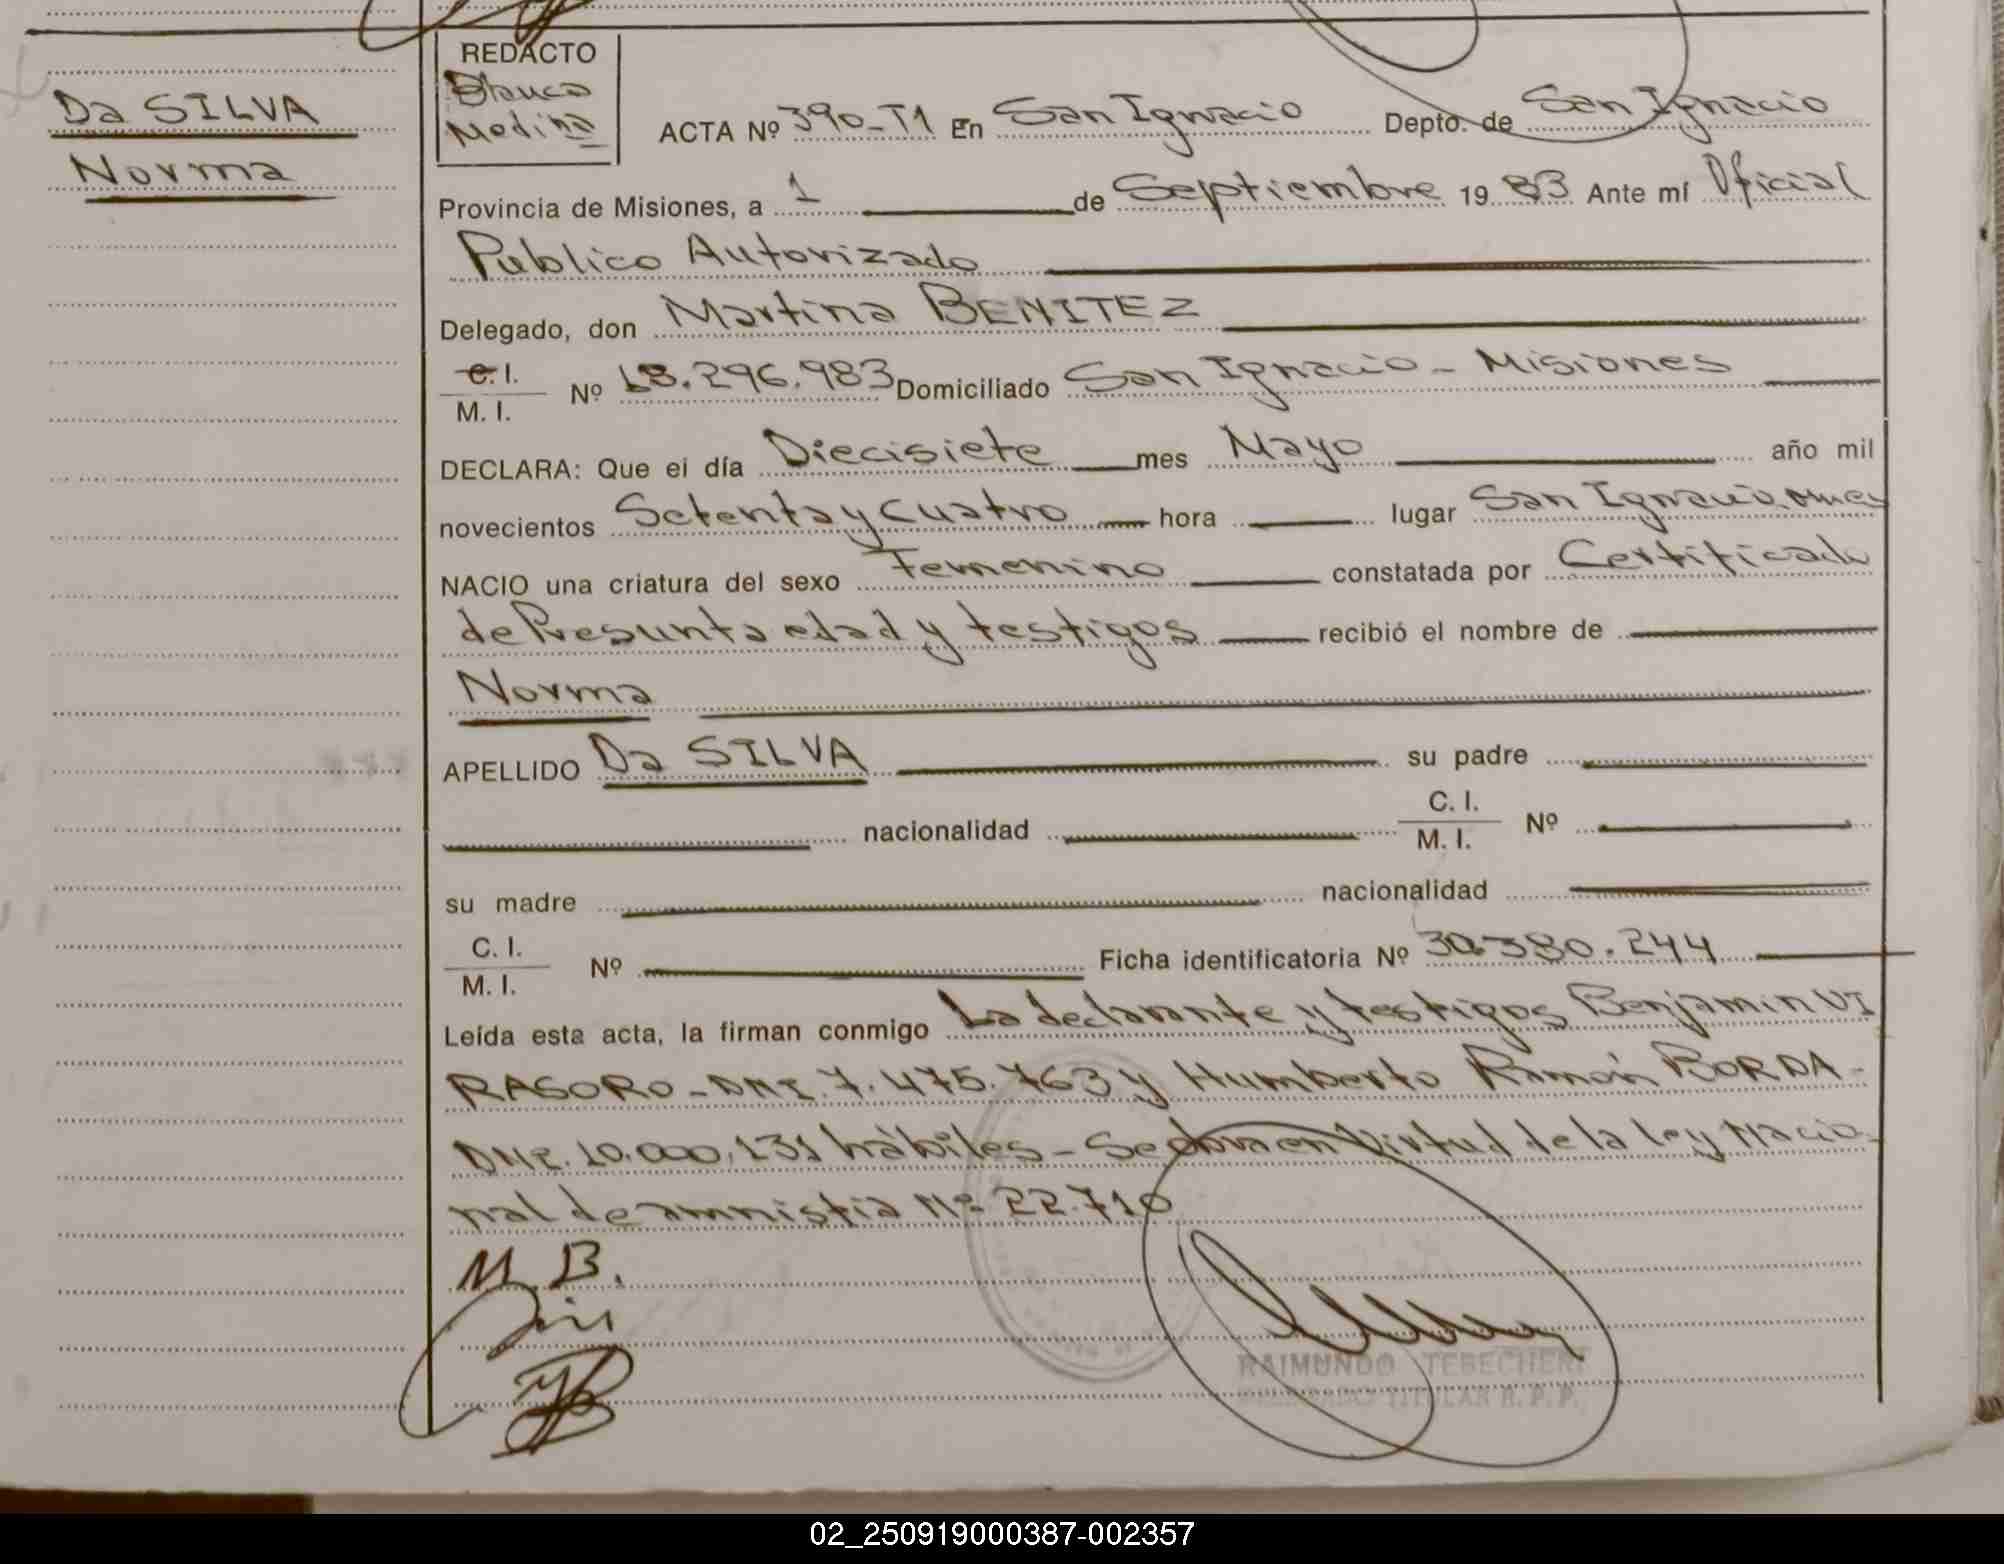 REDACTO
Blanca
Medina
Da SILVA
Norma
ACTA Nº 390-T1 En San Ignacio Depto. de San Ignacio
Provincia de Misiones, a 1 de Septiembre 1983 Ante mí Oficial
Publico Autorizado
Delegado, don Martina BENITEZ
C. I.
M. I. Nº 18.296.983 Domiciliado San Ignacio - Misiones
DECLARA: Que el día Diecisiete mes Mayo año mil
novecientos Setenta y Cuatro hora lugar San Ignacio
NACIO una criatura del sexo Femenino constatada por Certificado
de Presunta edad y testigos recibió el nombre de
Norma
APELLIDO Da SILVA su padre
nacionalidad C. I.
M. I. Nº
su madre nacionalidad
C. I.
M. I. Nº Ficha identificatoria Nº 30.380.244
Leída esta acta, la firman conmigo La declarante y testigos Benjamin VI
RASORO - DNI. 7.475.763 y Humberto Ramón BORDA -
DNI. 10.000.131 hábiles - Se labra en Virtud de la ley Nacio
nal de amnistia Nº 22.710
M. B.
RAIMUNDO TEBECHERI
DELEGADO TITULAR R. P. P.
02_250919000387-002357